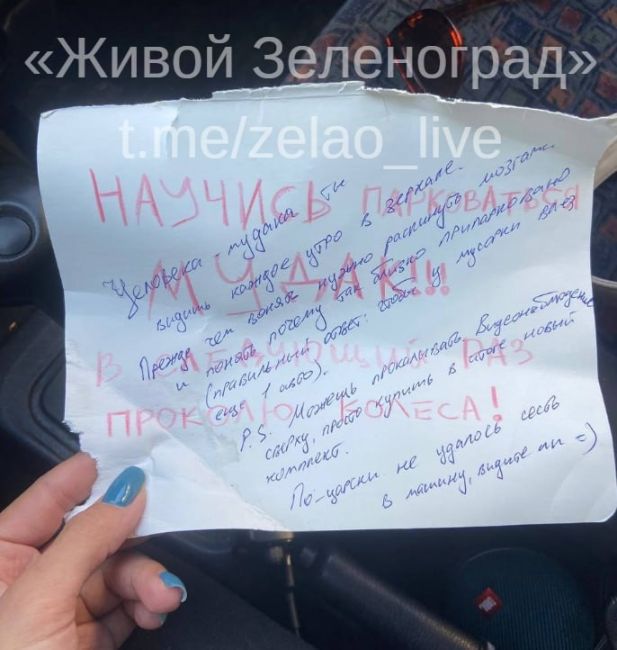 «Живой Зеленоград»
t.me/zelao_live
НАУЧИСЬ ПАРКОВАТЬСЯ
МУДАК!!!
В СЛЕДУЮЩИЙ РАЗ
ПРОКОЛЮ КОЛЕСА!
Человека мудака ты
видишь каждое утро в зеркале.
Прежде чем вонять нужно раскинуть мозгами
и понять почему так близко припарковано
(правильный ответ: чтобы у мусорки влез
еще 1 авто).
P.S. Можешь прокалывать. Видеонаблюдение
сверху, просто купить в итоге новый
комплект.
По-царски не удалось сесть
в машину, видите ли =)